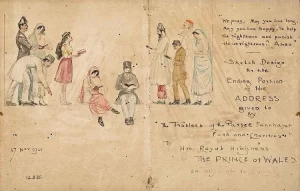 "We pray, May you live long,
May you live happy, to help
the righteous and punish
the unrighteous." Amen
Sketch Design
for the
Ending Portion
of the
ADDRESS
given to
by
The Trustees of the Parsee Panchayat
Fund and
To
His Royal Highness
THE PRINCE OF WALES
17 Nov 1921